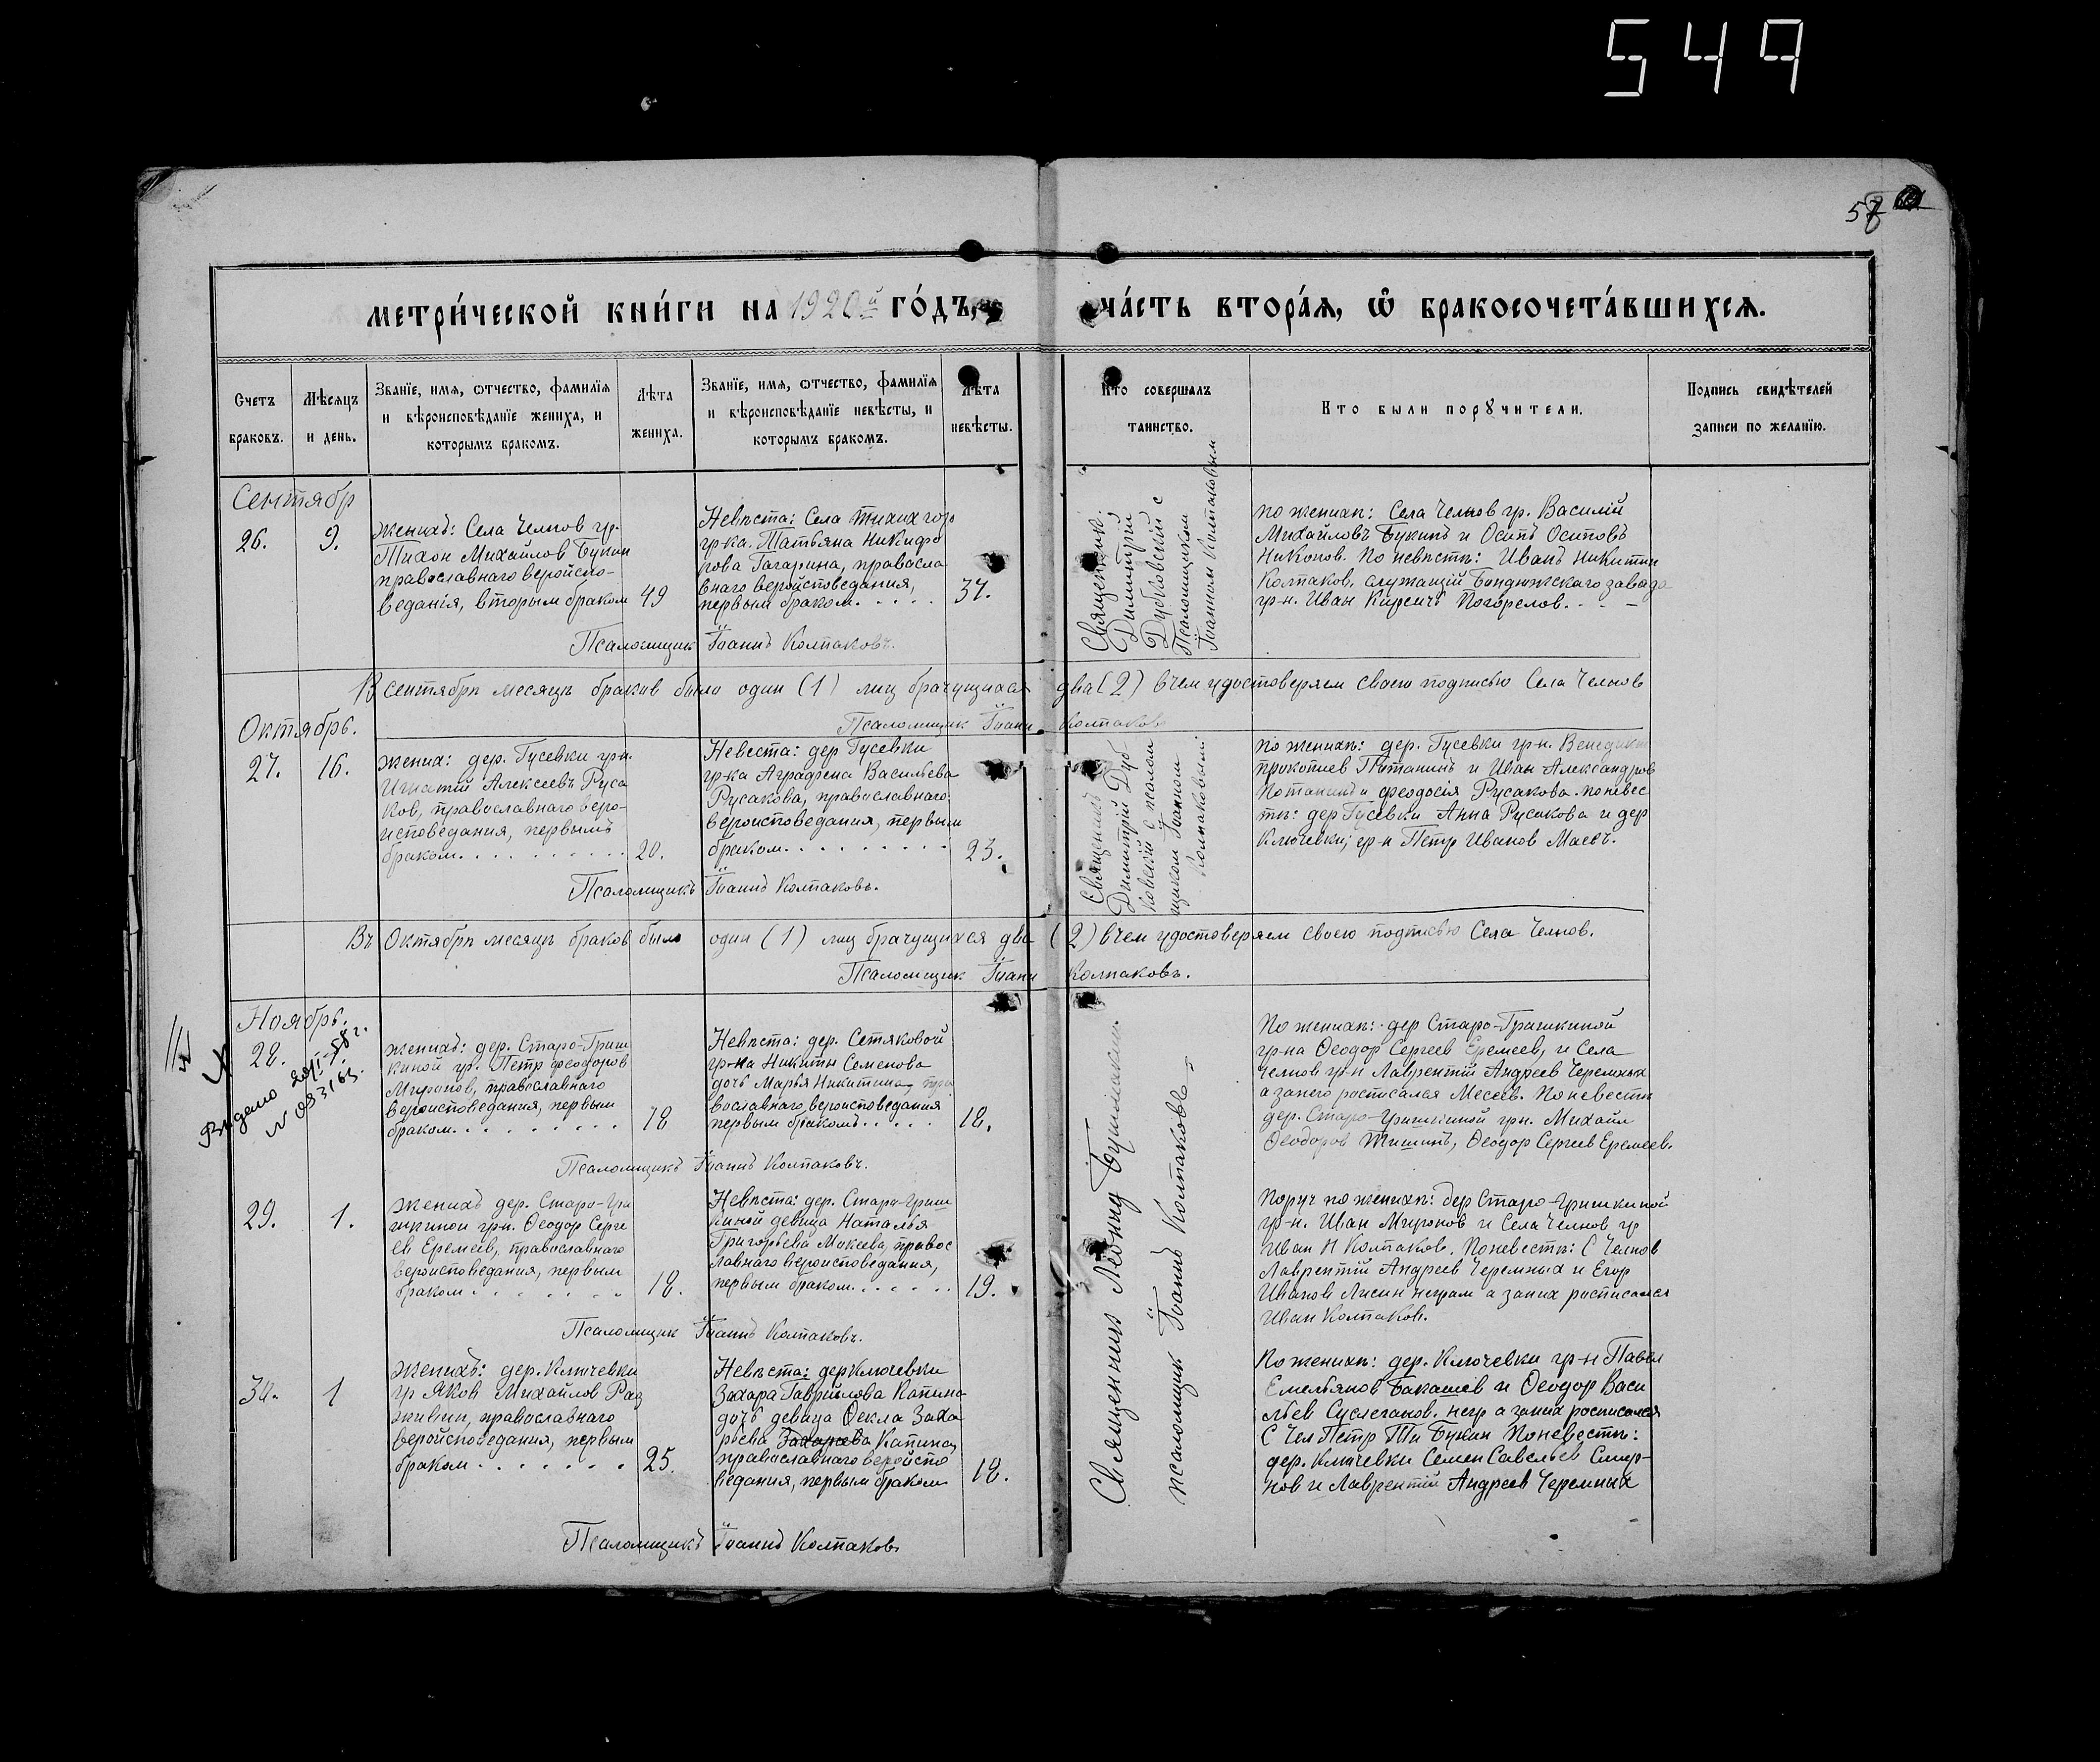 549
58
метри́ческой кни́ги на 1920й го́дъ,
ча́сть втора́я, ѡ҆ бракосочета́вшихся.
Счетъ
браковъ.
Мѣсяцъ
и день.
Званїе, имя, ѡтчество, фамилїя
и вѣроисповѣданїе жениха, и
которымъ бракомъ.
Лѣта
жениха.
Званїе, имя, ѡтчество, фамилїя
и вѣроисповѣданїе невѣсты, и
которымъ бракомъ.
Лѣта
невѣсты.
Кто совершалъ
таинство.
Кто были порꙋчители.
Подпись свидѣтелей
записи по желанїю.
Сентябр
26.
9.
Женихъ: Села Челнов гр.
Тихон Михайлов Букин
православнаго веройспо-
ведания, вторым браком
49
Невѣста: Села Тихих гор
гр-ка. Татьяна Никифо
рова Гагарина, правосла
внаго веройсповедания,
первым браком.....
37.
Священник.
Димитрий
Дубковский с
Псаломщиком
Iоанном Колпаковым
По женихѣ: Села Челнов гр. Василий
Михайловъ Букинъ и Осипъ Осиповъ
Никонов. По невѣстѣ: Иванъ Никитин
Колпаков, служащий Бондюжскаго завода
гр-н. Иван Погорелов. . . -
Псаломщик Iоаннъ Колпаковъ.
В сентябрѣ месяцѣ браков было один (1) лиц брачущихся два (2) в чем удостоверяем своею подписью Села Челнов
Псаломщик Iоанн Колпаков
Октябрь.
27.
16.
Жених: дер. Гусевки гр-н.
Игнатий Алексеевъ Руса
ков, православнаго веро-
исповедания, первымъ
браком. . . . . . . . .
20.
Невеста: дер Гусевки
гр-ка Аграфена Васильева
Русакова, православнаго
вероисповедания, первым
браком. . . . . . . . .
23.
Священникъ
Димитрий Дуб-
ковский с псалом
щиком Iоанном
Колпаковым.
По женихѣ: дер. Гусевки гр-н. Венедикт
Прокопиев Потапинъ и Иван Александров
и феодосия Русакова. по невес
тѣ: дер Гусевки Анна Русакова и дер
Ключевки; гр-н Петр Иванов Маевъ.
Псаломщикъ Iоаннъ Колпаковъ.
Въ Октябрѣ месяцѣ браков было один (1) лиц брачущихся два (2) в чем удостоверяем своею подписью Села Челнов.
Псаломщик Iоанн Колпаковъ.
Ноябрь.
28.
Выдано
Женихъ: дер. Старо-Гриш
киной гр. Петр феодоров
Миронов, православнаго
вероисповедания, первым
браком. . . . . . . . .
18
Невѣста: дер. Сетяковой
гр-на Никиты Семенова
дочь Марья Никитина, пра
вославнаго вероисповедания
первым бракомъ.....
18.
Священник Леонид
псаломщик Iоаннъ Колпаковъ
По женихѣ: дер Старо-Гришкиной
гр-на Феодор Сергеев Еремеев, и Села
Челнов гр-н Лаврентий Андреев Черемных
а за него росписался Месеев. По невестѣ
дер. Старо-Гришкиной гр-н. Михаил
Феодоров Тишинъ, Феодор Сергеев Еремеев.
Псаломщикъ Iоаннъ Колпаковъ.
29.
1.
Женихъ дер. Старо-Гри
шкиной гр-н. Феодор Серге
ев Еремеев, православнаго
вероисповедания, первым
браком . . . . . . . .
18.
Невѣста: дер. Старо-Гриш
киной девица Наталья
Григорьева Мокеева, правос
лавнаго вероисповедания,
первым браком. . . . . .
19.
Поруч по женихѣ: дер Старо-Гришкиной
гр-н. Иван Миронов и Села Челнов гр
Иван Н Колпаков. По невестѣ: С Челнов
Лаврентий Андреев Черемных и Егор
Иванов Лисин неграм а за них росписался
Иван Колпаков.
Псаломщик Iоаннъ Колпаковъ.
30.
1
Женихъ: дер. Ключевки
гр Яков Михайлов Раз
живин, православнаго
веройсповедания, первым
браком . . . . . . .
25.
Невѣста: дер Ключевки
Захара Гаврилова Капина
дочь девица Фекла Заха
рьева Захарова Капина,
православнаго веройспо
ведания, первым браком
18.
По женихѣ: дер. Ключевки гр-н Павел
Емельянов Бакашев и Феодор Васи
льев. негр а за них росписался
С Чел Петр Ти Букин По невестѣ:
дер. Ключевки Семен Савельев Смир-
нов и Лаврентий Андреев Черемных
Псаломщикъ Iоаннъ Колпаков